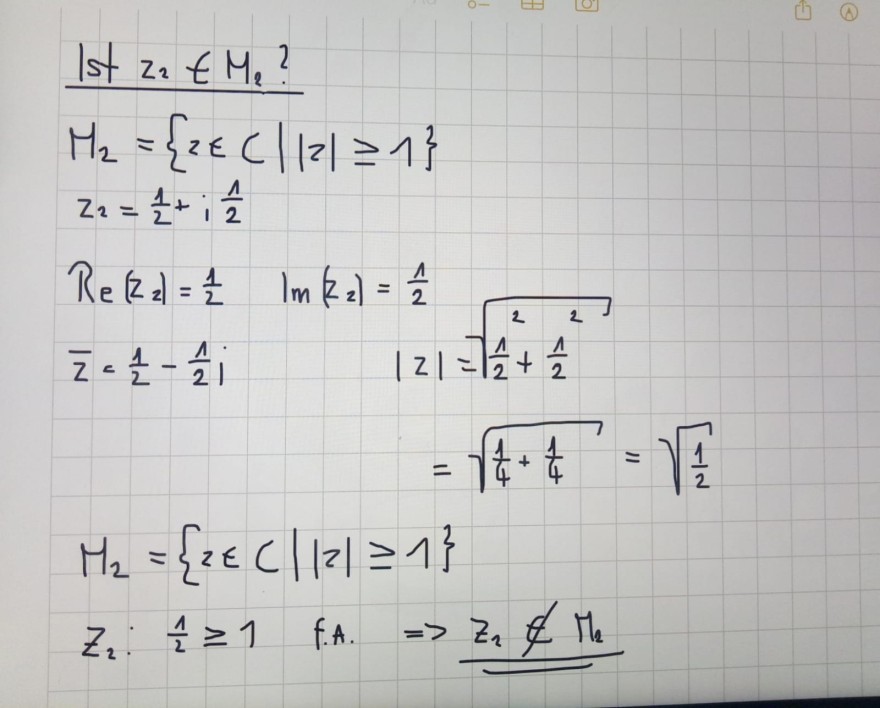 Ist z₂ ∈ M₂?
M₂ = {z ∈ C | |z| ≥ 1}
z₂ = 1/2 + i 1/2
Re(z₂) = 1/2 Im(z₂) = 1/2
z̅ = 1/2 - 1/2 i |z| = √(1/2² + 1/2²)
= √(1/4 + 1/4) = √(1/2)
M₂ = {z ∈ C | |z| ≥ 1}
z₂: 1/2 ≥ 1 f.A. => z₂ ∉ M₂